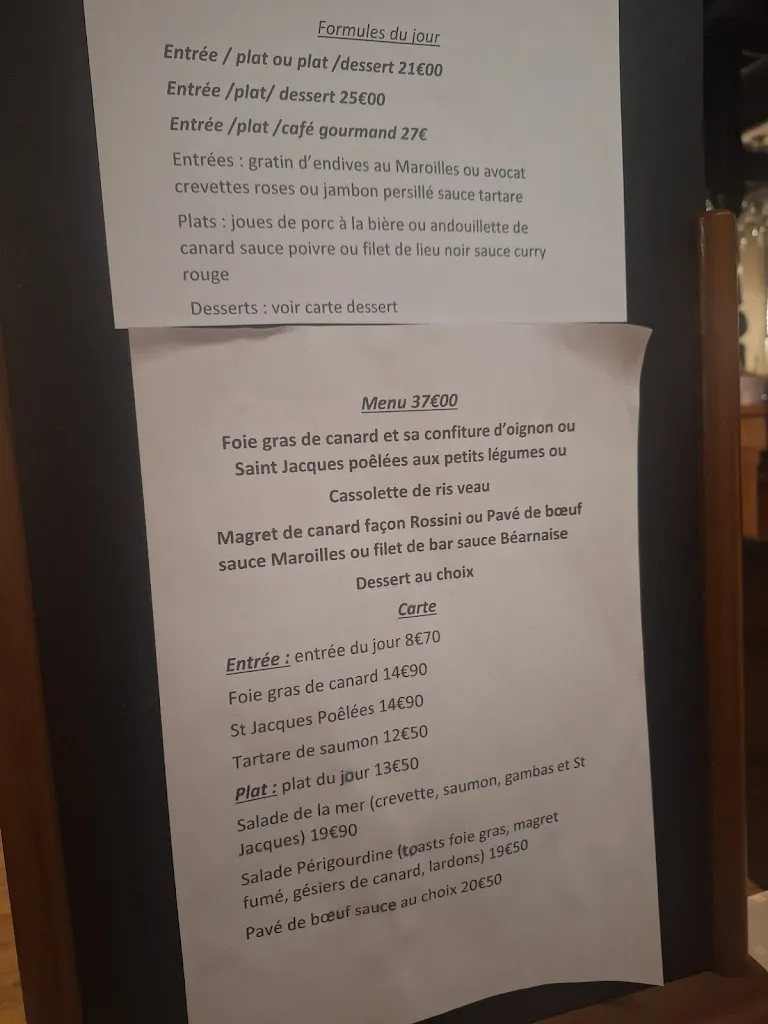 Formules du jour
Entrée / plat ou plat /dessert 21€00
Entrée /plat/ dessert 25€00
Entrée /plat /café gourmand 27€
Entrées : gratin d'endives au Maroilles ou avocat
crevettes roses ou jambon persillé sauce tartare
Plats : joues de porc à la bière ou andouillette de
canard sauce poivre ou filet de lieu noir sauce curry
rouge
Desserts : voir carte dessert
Menu 37€00
Foie gras de canard et sa confiture d'oignon ou
Saint Jacques poêlées aux petits légumes ou
Cassolette de ris veau
Magret de canard façon Rossini ou Pavé de bœuf
sauce Maroilles ou filet de bar sauce Béarnaise
Dessert au choix
Carte
Entrée : entrée du jour 8€70
Foie gras de canard 14€90
St Jacques Poêlées 14€90
Tartare de saumon 12€50
Plat : plat du jour 13€50
Salade de la mer (crevette, saumon, gambas et St
Jacques) 19€90
Salade Périgourdine (toasts foie gras, magret
fumé, gésiers de canard, lardons) 19€50
Pavé de bœuf sauce au choix 20€50